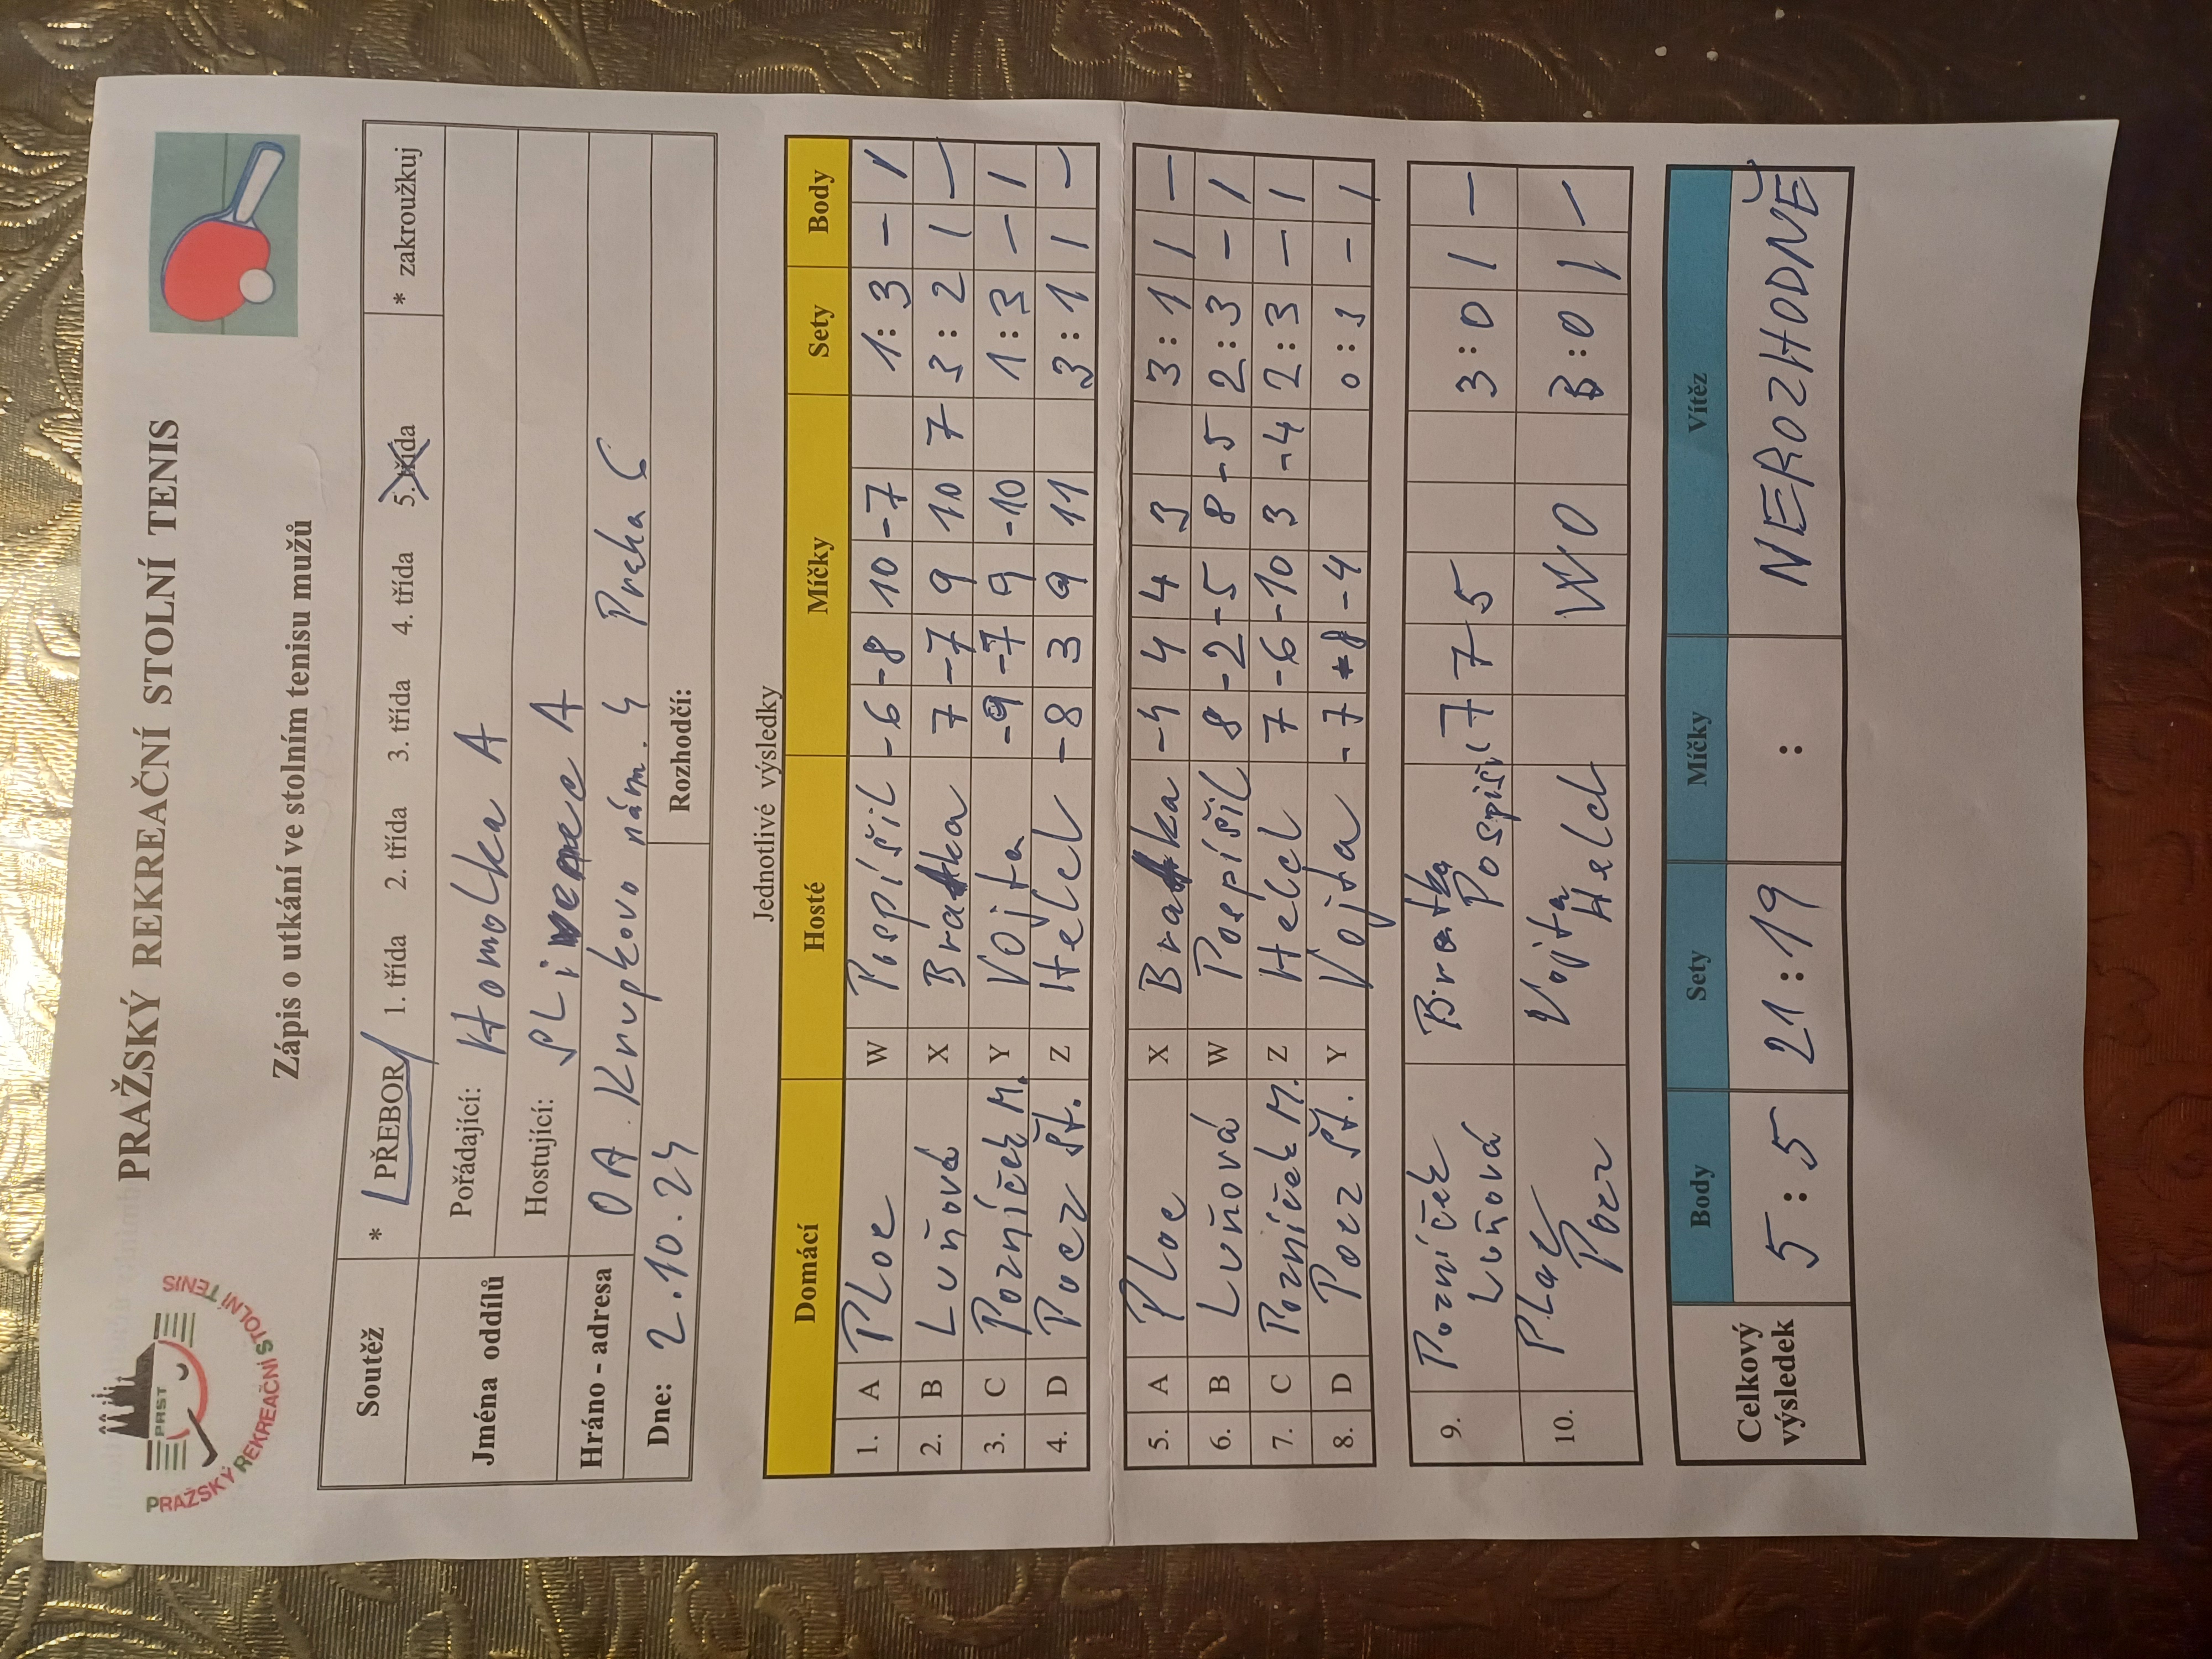 PRAŽSKÝ REKREAČNÍ STOLNÍ TENIS
PRST
PRAŽSKÝ REKREAČNÍ STOLNÍ TENIS
Zápis o utkání ve stolním tenisu mužů
Soutěž * PŘEBOR 1. třída 2. třída 3. třída 4. třída 5. třída * zakroužkuj
Jména oddílů Pořádající: Homolka A
Hostující: Slivenec A
Hráno - adresa OA Krupkovo nám. 4 Praha 6
Dne: 2.10.24 Rozhodčí:
Jednotlivé výsledky
Domácí Hosté Míčky Sety Body
1. A Ploc W Pospíšil -6 -8 10 -7 1:3 - 1
2. B Luňová X Bratka 7 -7 9 10 7 3:2 1 -
3. C Pozníček M. Y Vojta -9 -7 9 -10 1:3 - 1
4. D Pocz St. Z Helcl -8 3 9 11 3:1 1 -
5. A Ploc X Bratka -4 4 4 3 3:1 1 -
6. B Luňová W Pospíšil 8 -2 -5 8 -5 2:3 - 1
7. C Pozníček M. Z Helcl 7 -6 -10 3 -4 2:3 - 1
8. D Pocz St. Y Vojta -7 -8 -4 0:3 - 1
9. Pozníček Bratka 7 7 5 3:0 1 -
Luňová Pospíšil
10. Ploc Vojta WO 3:0 1 -
Pocz Helcl
Celkový výsledek Body Sety Míčky Vítěz
5:5 21:19 : NEROZHODNĚ